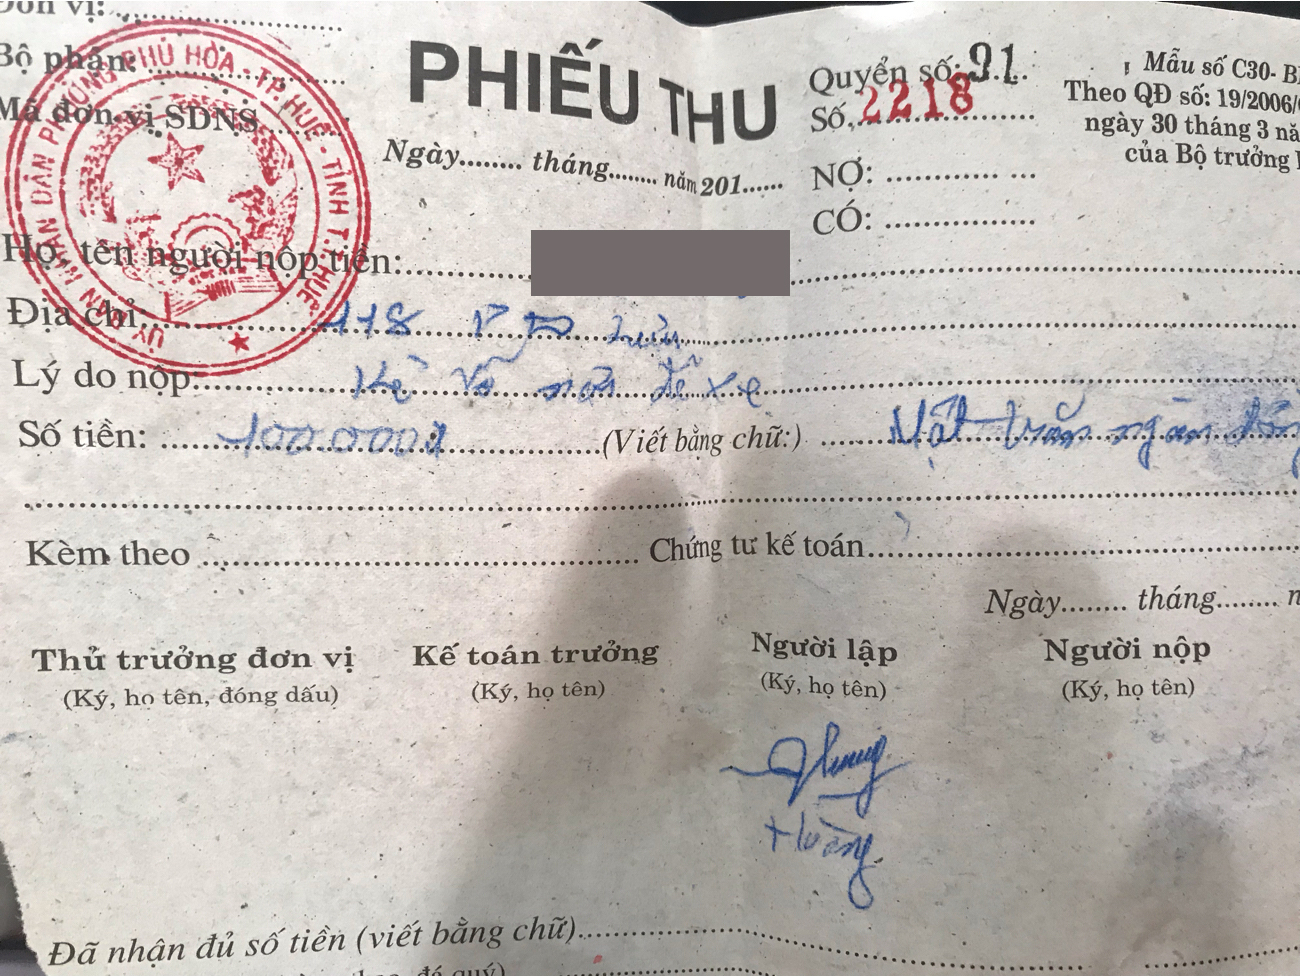 Đơn vị:
Bộ phận:
Mã đơn vị SDNS
ỦY BAN NHÂN DÂN PHƯỜNG PHÚ HÒA - TP. HUẾ - TỈNH T.T.HUẾ
PHIẾU THU
Ngày........ tháng........ năm 201......
Quyển số: 91
Số 2218
NỢ: ............ ...
CÓ: ................
Mẫu số C30- B
Theo QĐ số: 19/2006/
ngày 30 tháng 3 nă
của Bộ trưởng
Họ, tên người nộp tiền:
Địa chỉ: 118
Lý do nộp: để xe
Số tiền: 100.000đ (Viết bằng chữ:) Một trăm ngàn đồng
Kèm theo ........ Chứng từ kế toán........
Ngày........ tháng........ n
Thủ trưởng đơn vị
(Ký, họ tên, đóng dấu)
Kế toán trưởng
(Ký, họ tên)
Người lập
(Ký, họ tên)
Người nộp
(Ký, họ tên)
Hoàng
Đã nhận đủ số tiền (viết bằng chữ)